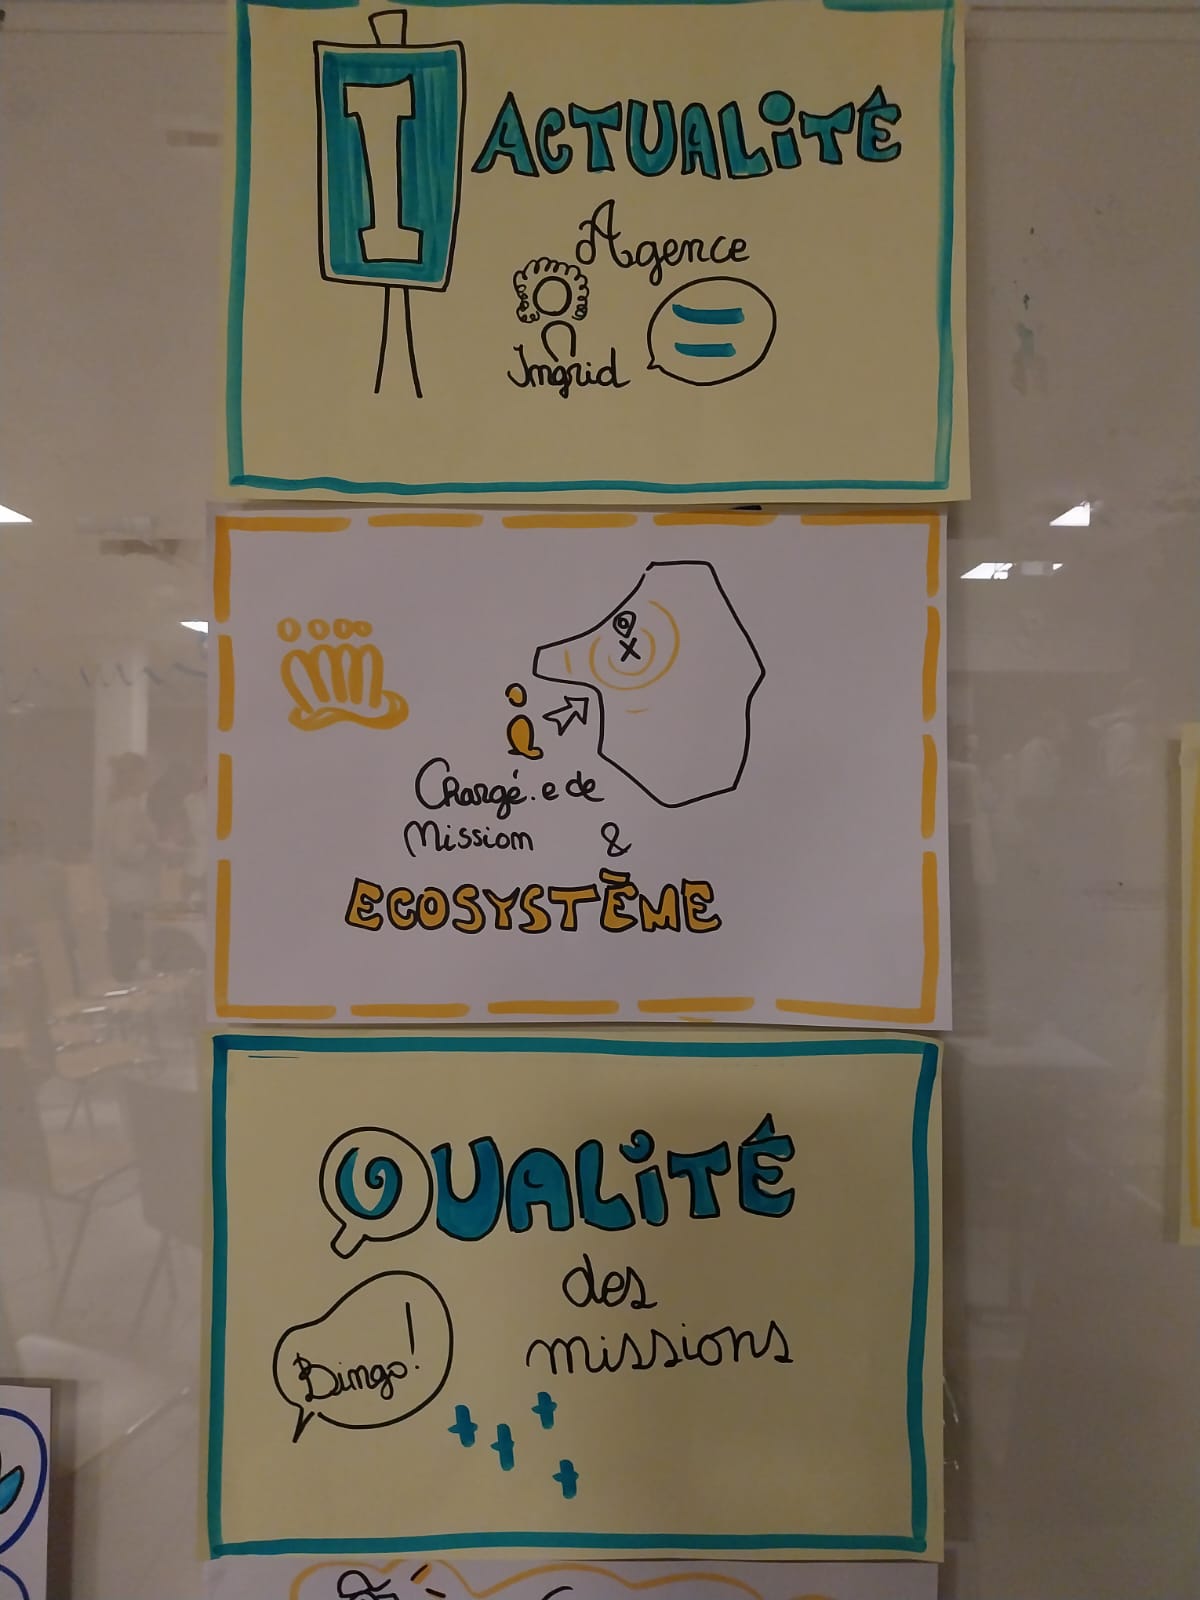 I ACTUALITÉ
Agence
Ingrid
Chargé.e de
Mission &
ECOSYSTÈME
QUALITÉ
des
missions
Bingo!